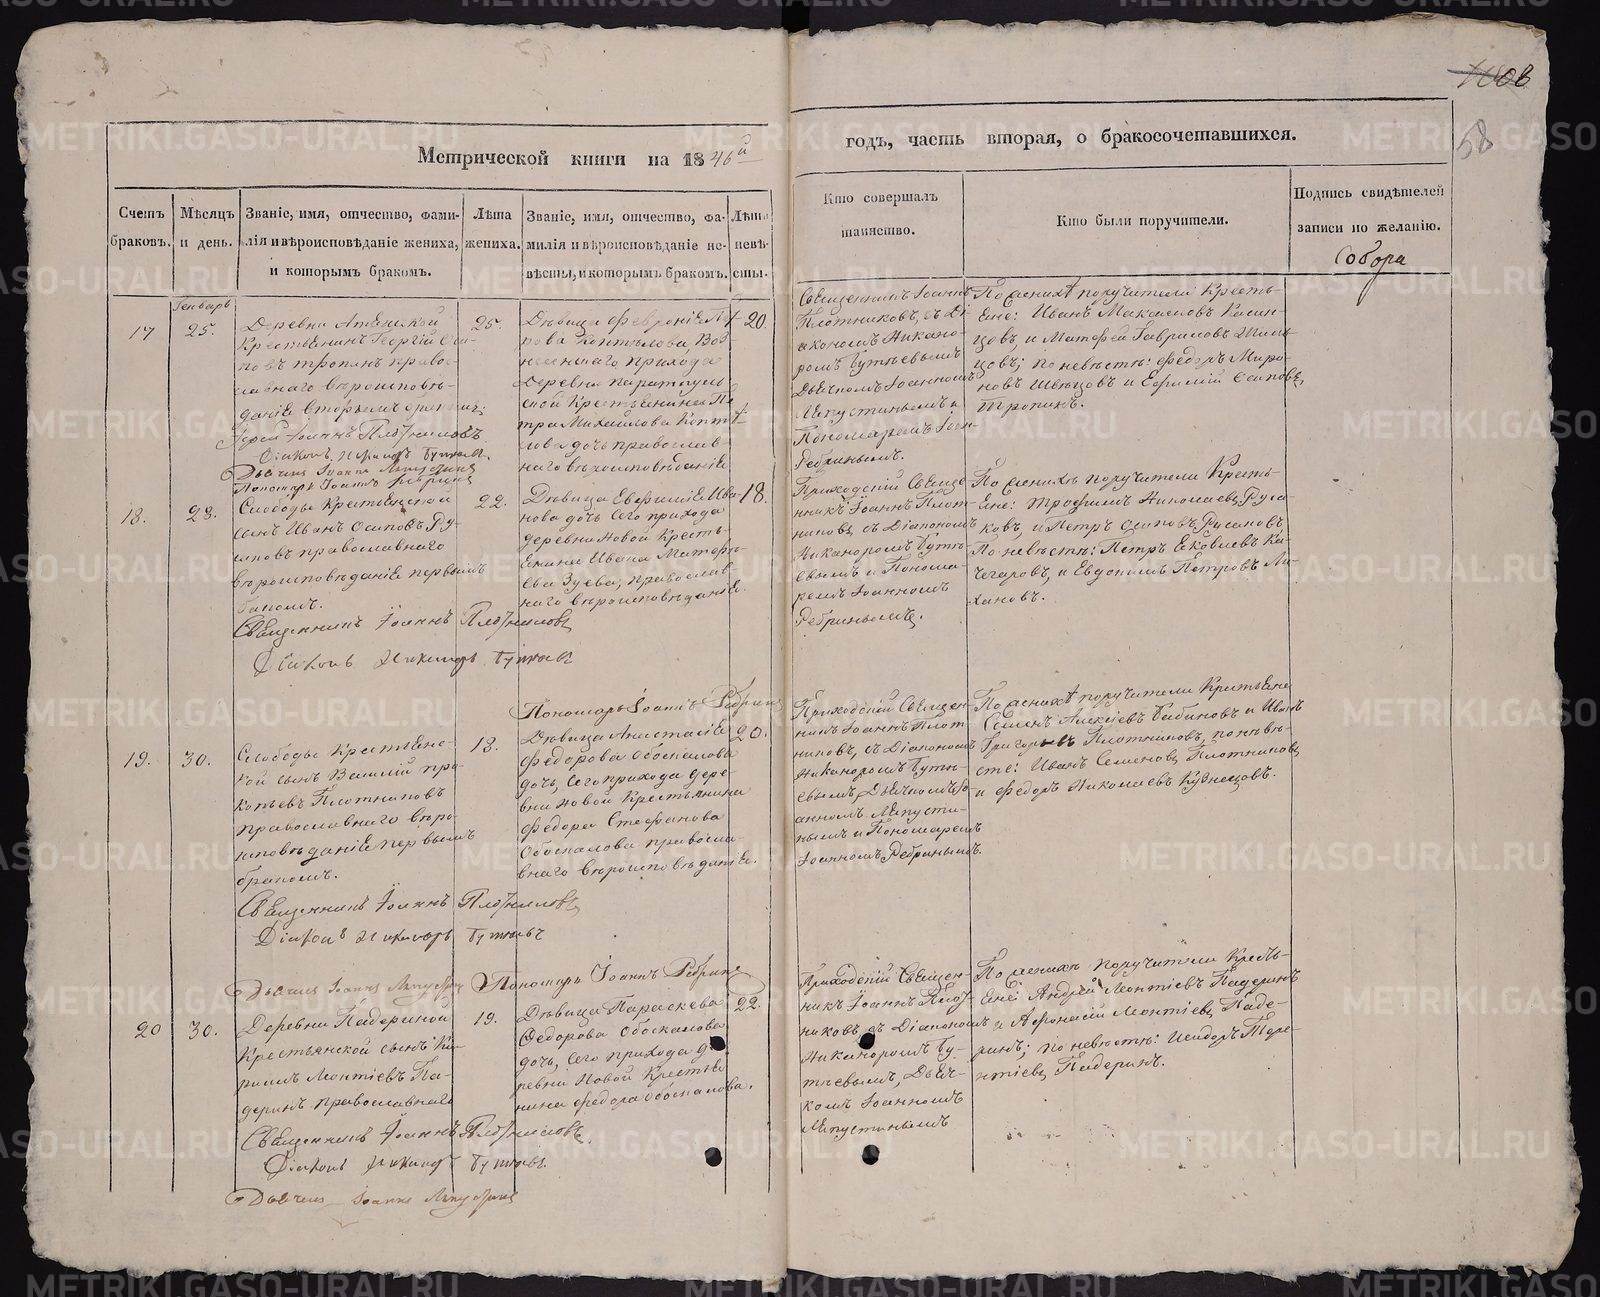 Метрической книги на 1846й
годъ, часть вторая, о бракосочетавшихся.
58
Счетъ браковъ.
Мѣсяцъ и день.
Званіе, имя, отчество, фами-
лія и вѣроисповѣданіе жениха,
и которымъ бракомъ.
Лѣта жениха.
Званіе, имя, отчество, фа-
милія и вѣроисповѣданіе не-
вѣсты, и которымъ бракомъ.
Лѣта невѣ-
сты.
Кто совершалъ
таинство.
Кто были поручители.
Подпись свидѣтелей
записи по желанію.
Собора
Генварь
17
25.
Деревни
Крестьянинъ Георгій Оси-
повъ Тропинъ право-
славнаго вѣроисповѣ-
даніе вторымъ бракомъ;
Іерей Іоаннъ Плотниковъ
Діаконъ Никаноръ Бутневъ
Дьячекъ Іоаннъ
Пономарь Іоаннъ Ребринъ
25.
Дѣвица Февроніе Пет
рова
Воз
несенскаго прихода
Деревни
ской Крестьянина Пе
тра Михайлова
лова дочь православ-
наго вѣроисповѣданіе
20.
Священникъ Іоаннъ
Плотниковъ, съ Ді
акономъ Никано-
ромъ Бутневымъ
Дьячкомъ Іоанномъ
и
Пономаремъ Іоан-
Ребринымъ.
По женихѣ поручители Кресть-
яне: Иванъ Максимовъ
цовъ, и Матфей Гавриловъ
цовъ; по невѣстѣ: Федоръ Миро-
новъ Швецовъ и Ефимій Осиповъ,
Тропинъ.
18.
28.
Слободы Крестьянской
сынъ Иванъ Осиповъ Ру-
саковъ православнаго
вѣроисповѣданіе первымъ
бракомъ.
Священникъ Іоаннъ Плотниковъ
Діаконъ Никаноръ Бутневъ
Пономарь Іоаннъ Ребринъ
22.
Дѣвица Евфиміе Ива-
нова дочь сего прихода
деревни Новой Кресть-
янина Ивана Матфѣ-
ева Зуева, православ
наго вѣроисповѣданіе.
18.
Приходскій Священ-
никъ Іоаннъ Плот-
никовъ, съ Діакономъ
Никаноромъ Бутнѣ-
евымъ и Понома-
ремъ Іоанномъ
Ребринымъ.
По женихѣ поручители Кресть-
яне: Трофимъ Николаевъ, Руса-
ковъ, и Петръ Осиповъ, Русаковъ,
По невѣстѣ: Петръ Яковлевъ Ка-
чегаровъ, и Евдокимъ Петровъ
хановъ.
19.
30.
Слободы Крестьянс-
кой сынъ Василій Про-
копьевъ Плотниковъ
православнаго вѣро-
исповѣданіе первымъ
бракомъ.
Священникъ Іоаннъ Плотниковъ
Діаконъ Никаноръ Бутневъ
Дьячекъ Іоаннъ
Пономарь Іоаннъ Ребринъ
18.
Дѣвица Анастасіе
Федорова Обоскалова
дочь, сего прихода дере-
вни Новой Крестьянина
Федора Стефанова
Обоскалова правосла-
внаго вѣроисповѣданіе.
20.
Приходскій Священ-
никъ Іоаннъ Плот-
никовъ, съ Діакономъ
Никаноромъ Бутн-
евымъ, Дьячкомъ Іо-
анномъ
нымъ и Пономаремъ
Іоанномъ Ребринымъ.
По женихѣ поручители Крестьяне
Семенъ Алексіевъ Бабиновъ и Иванъ
Григорьевъ Плотниковъ, по невѣ-
стѣ: Иванъ Семеновъ, Плотниковъ,
и Федоръ Николаевъ Кузнецовъ.
20
30.
Деревни Падериной
Крестьянской сынъ Ки-
риллъ Леонтіевъ Па-
деринъ православнаго
Священникъ Іоаннъ Плотниковъ.
Діаконъ Никаноръ Бутневъ.
Дьячекъ Іоаннъ
19.
Дѣвица Параскева
Федорова Обоскалова
дочь, сего прихода де-
ревни Новой Крестья
нина Федора Обоскалова.
22.
Приходскій Священ-
никъ Іоаннъ Плот-
никовъ, съ Діакономъ
Никаноромъ Бу-
тневымъ, Дьяч-
комъ Іоанномъ
По женихѣ поручители Кресть-
яне: Андрей Леонтіевъ Падеринъ
и Афонасій Леонтіевъ, Паде-
ринъ; по невѣстѣ: Исидоръ Тере-
нтіевъ, Падеринъ.